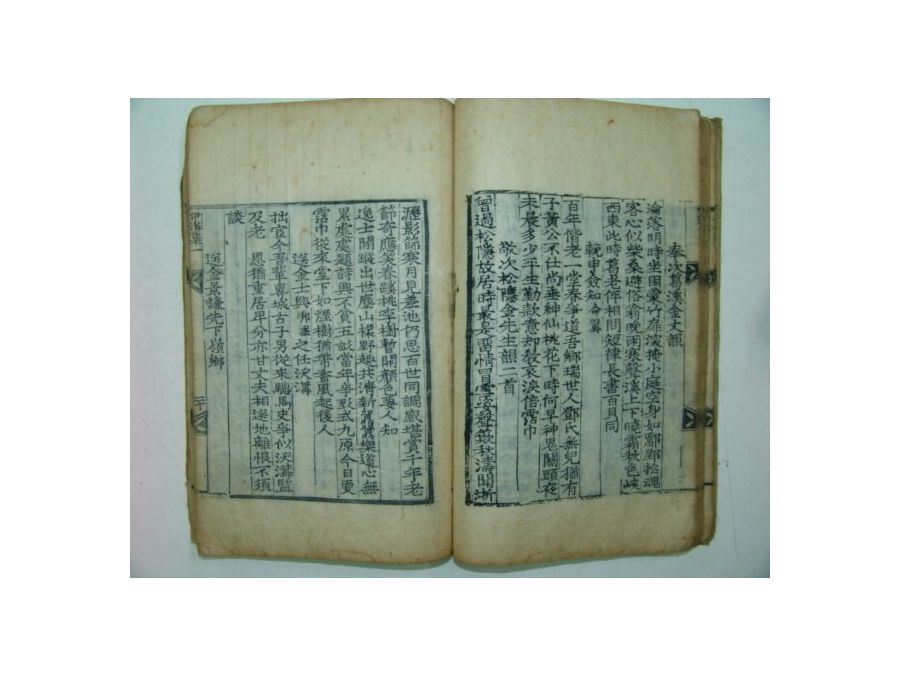 奉次葛溪金丈韻
淪落明時坐困蒙竹扉深掩小庭空身如鄢郢招魂
客心似柴桑避俗翁晚雨寒聲溪上下曉霜秋色峽
西東此時葛老俾相問短律長書百具同
輓申僉知命翼
百年偕老一堂春爭道吾鄉瑞世人鄧氏無兒猶有
子黃公不仕尚垂紳仙桃花下時何早神鬼關頭夜
未晨多少平生勤款意却教哀淚倍霑巾
敬次松隱金先生韻二首
曾過松隱故居時最是
聲
秋濤聞
瀝影節寒月見
池仍思百世同調感堪賞千年老
節奇應笑春蹊桃李樹暫開顏色要人知
逸士閒蹤出世塵山樑野趣共清新
樂道心無
累處處題詩興不貧五
當年爭致式九原今日更
霑巾從來堂下如煙樹猶帶香風起後人
送金士興
之任沃溝
拙宦今吾輩專城古子男從來驄馬史爭似沃溝監
及老
恩猶重居卑分亦甘丈夫相送地離恨不須
談
送金景謙先下嶺鄉
集一
二十